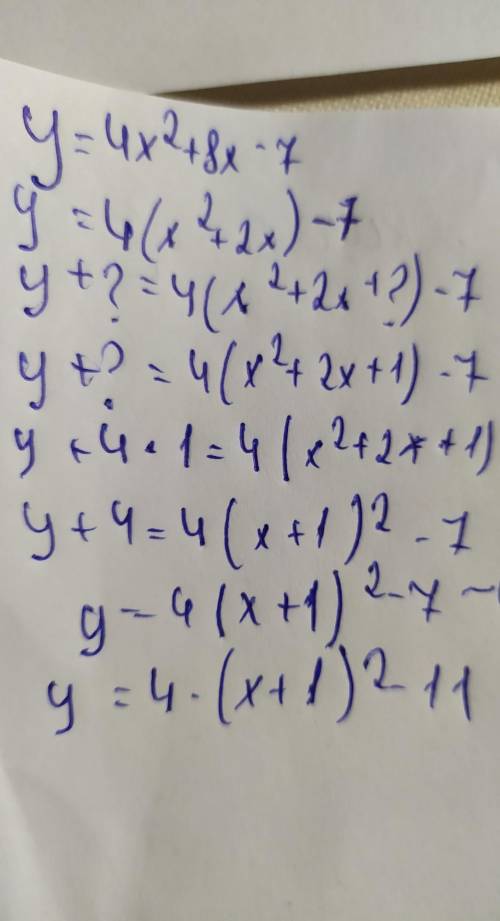 y = 4x²+8x-7
y = 4(x²+2x)-7
y+? = 4(x²+2x+?)-7
y+? = 4(x²+2x+1)-7
y+4·1=4(x²+2x+1)
y+4=4(x+1)²-7
y=4(x+1)²-7-
y=4·(x+1)²-11